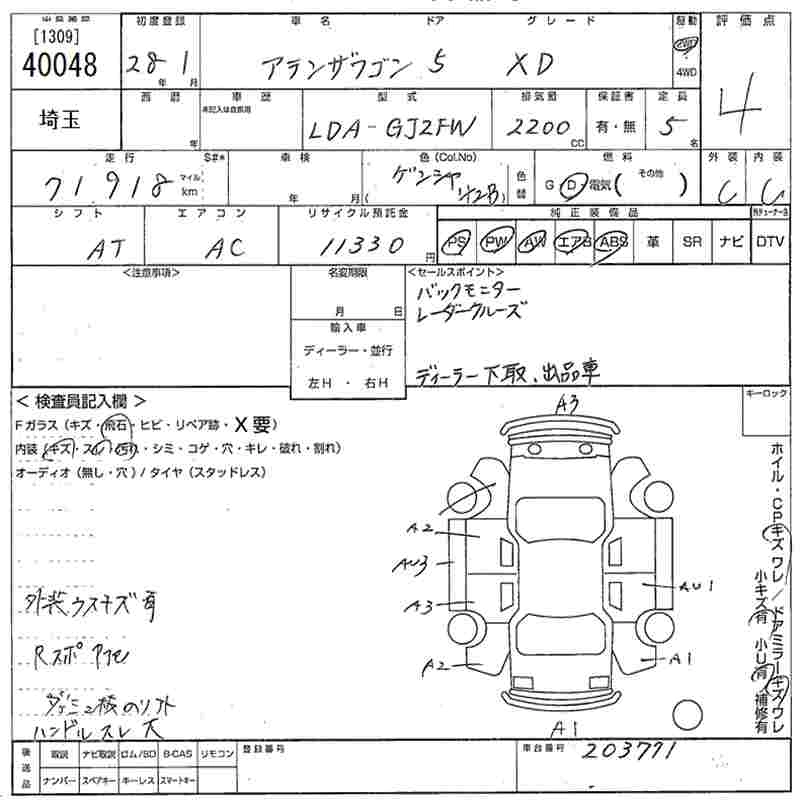 [1309]
40048
初度登録 車名 ドア グレード 駆動 評価点
28年 1月 アテンザワゴン 5 XD 2WD 4WD 4
埼玉
西暦 車歴 型式 排気量 保証書 定員
年 未記入は自家用 LDA-GJ2FW 2200cc 有・無 5名
走行 S#* 車検 色(Col.No) 燃料 外装 内装
71,918 マイル km 年 月 ( 42B) 色替 G D・電気( その他 ) C C
シフト エアコン リサイクル預託金 純正装備品
AT AC 11330円 PS PW AW エアB ABS 革 SR ナビ DTV
<注意事項> 名変期限 <セールスポイント>
月 日
バックモニター
レーダークルーズ
輸入車
ディーラー・並行
左H ・ 右H
ディーラー下取、出品車
キーロック
< 検査員記入欄 >
Fガラス(キズ・飛石・ヒビ・リペア跡・X要)
内装(キズ・スレ・汚れ・シミ・コゲ・穴・キレ・破れ・割れ)
オーディオ(無し・穴)/タイヤ(スタッドレス)
外装ウスキズ有
ハンドルスレ大
A3
A2
AU3
A3
A2
AU1
A1
A1
ホイル・CPキズワレ/ドアミラーキズワレ
小キズ有 小U有 補修有
後送品 取説 ナビ取説 ロム/SD B-CAS リモコン
ナンバー スペアキー キーレス スマートキー
登録番号
車台番号 203771